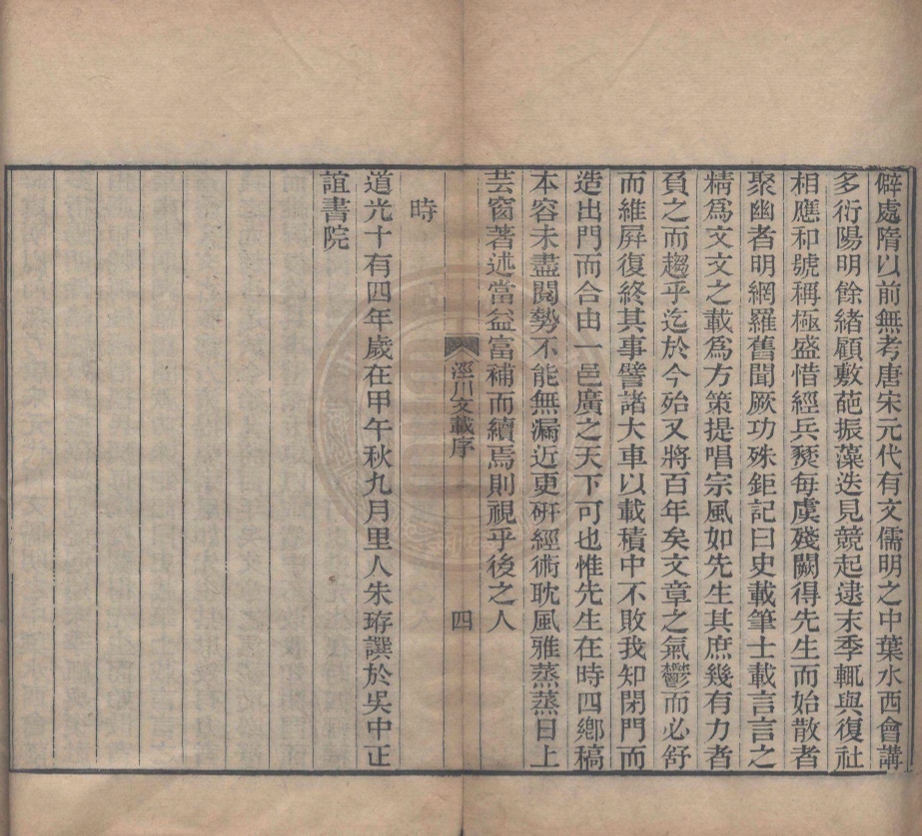 僻處隋以前無考唐宋元代有文儒明之中葉水西會講
多衍陽明餘緒顧敷葩振藻迭見競起逮末季輒與復社
相應和號稱極盛惜經兵燹每虞殘闕得先生而始散者
聚幽者明網羅舊聞厥功殊鉅記曰史載筆士載言言之
精爲文文之載爲方策提唱宗風如先生其庶幾有力者
負之而趨乎迄於今殆又將百年矣文章之氣鬱而必舒
而維屏復終其事譬諸大車以載積中不敗我知閉門而
造出門而合由一邑廣之天下可也惟先生在時四鄉稿
本容未盡閱勢不能無漏近更研經術耽風雅蒸蒸日上
芸窗著述當益富補而續焉則視乎後之人
涇川文載序 四
時
道光十有四年歲在甲午秋九月里人朱珔譔於吳中正
誼書院